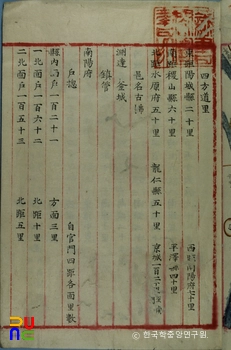 四方道里
陽城縣二十里 西距南陽府七十里
稷山縣六十里 平澤 四十里
水原府五十里 龍仁縣五十里 京城一百三十里
邑名古號
測達 釜城
鎮管
南陽府
戶總 自官門四距各面里數
縣內面戶一百二十一 方面三里
一北面戶一百六十二 北距十里
二北面戶一百五十三 北距五里
한국학중앙연구원